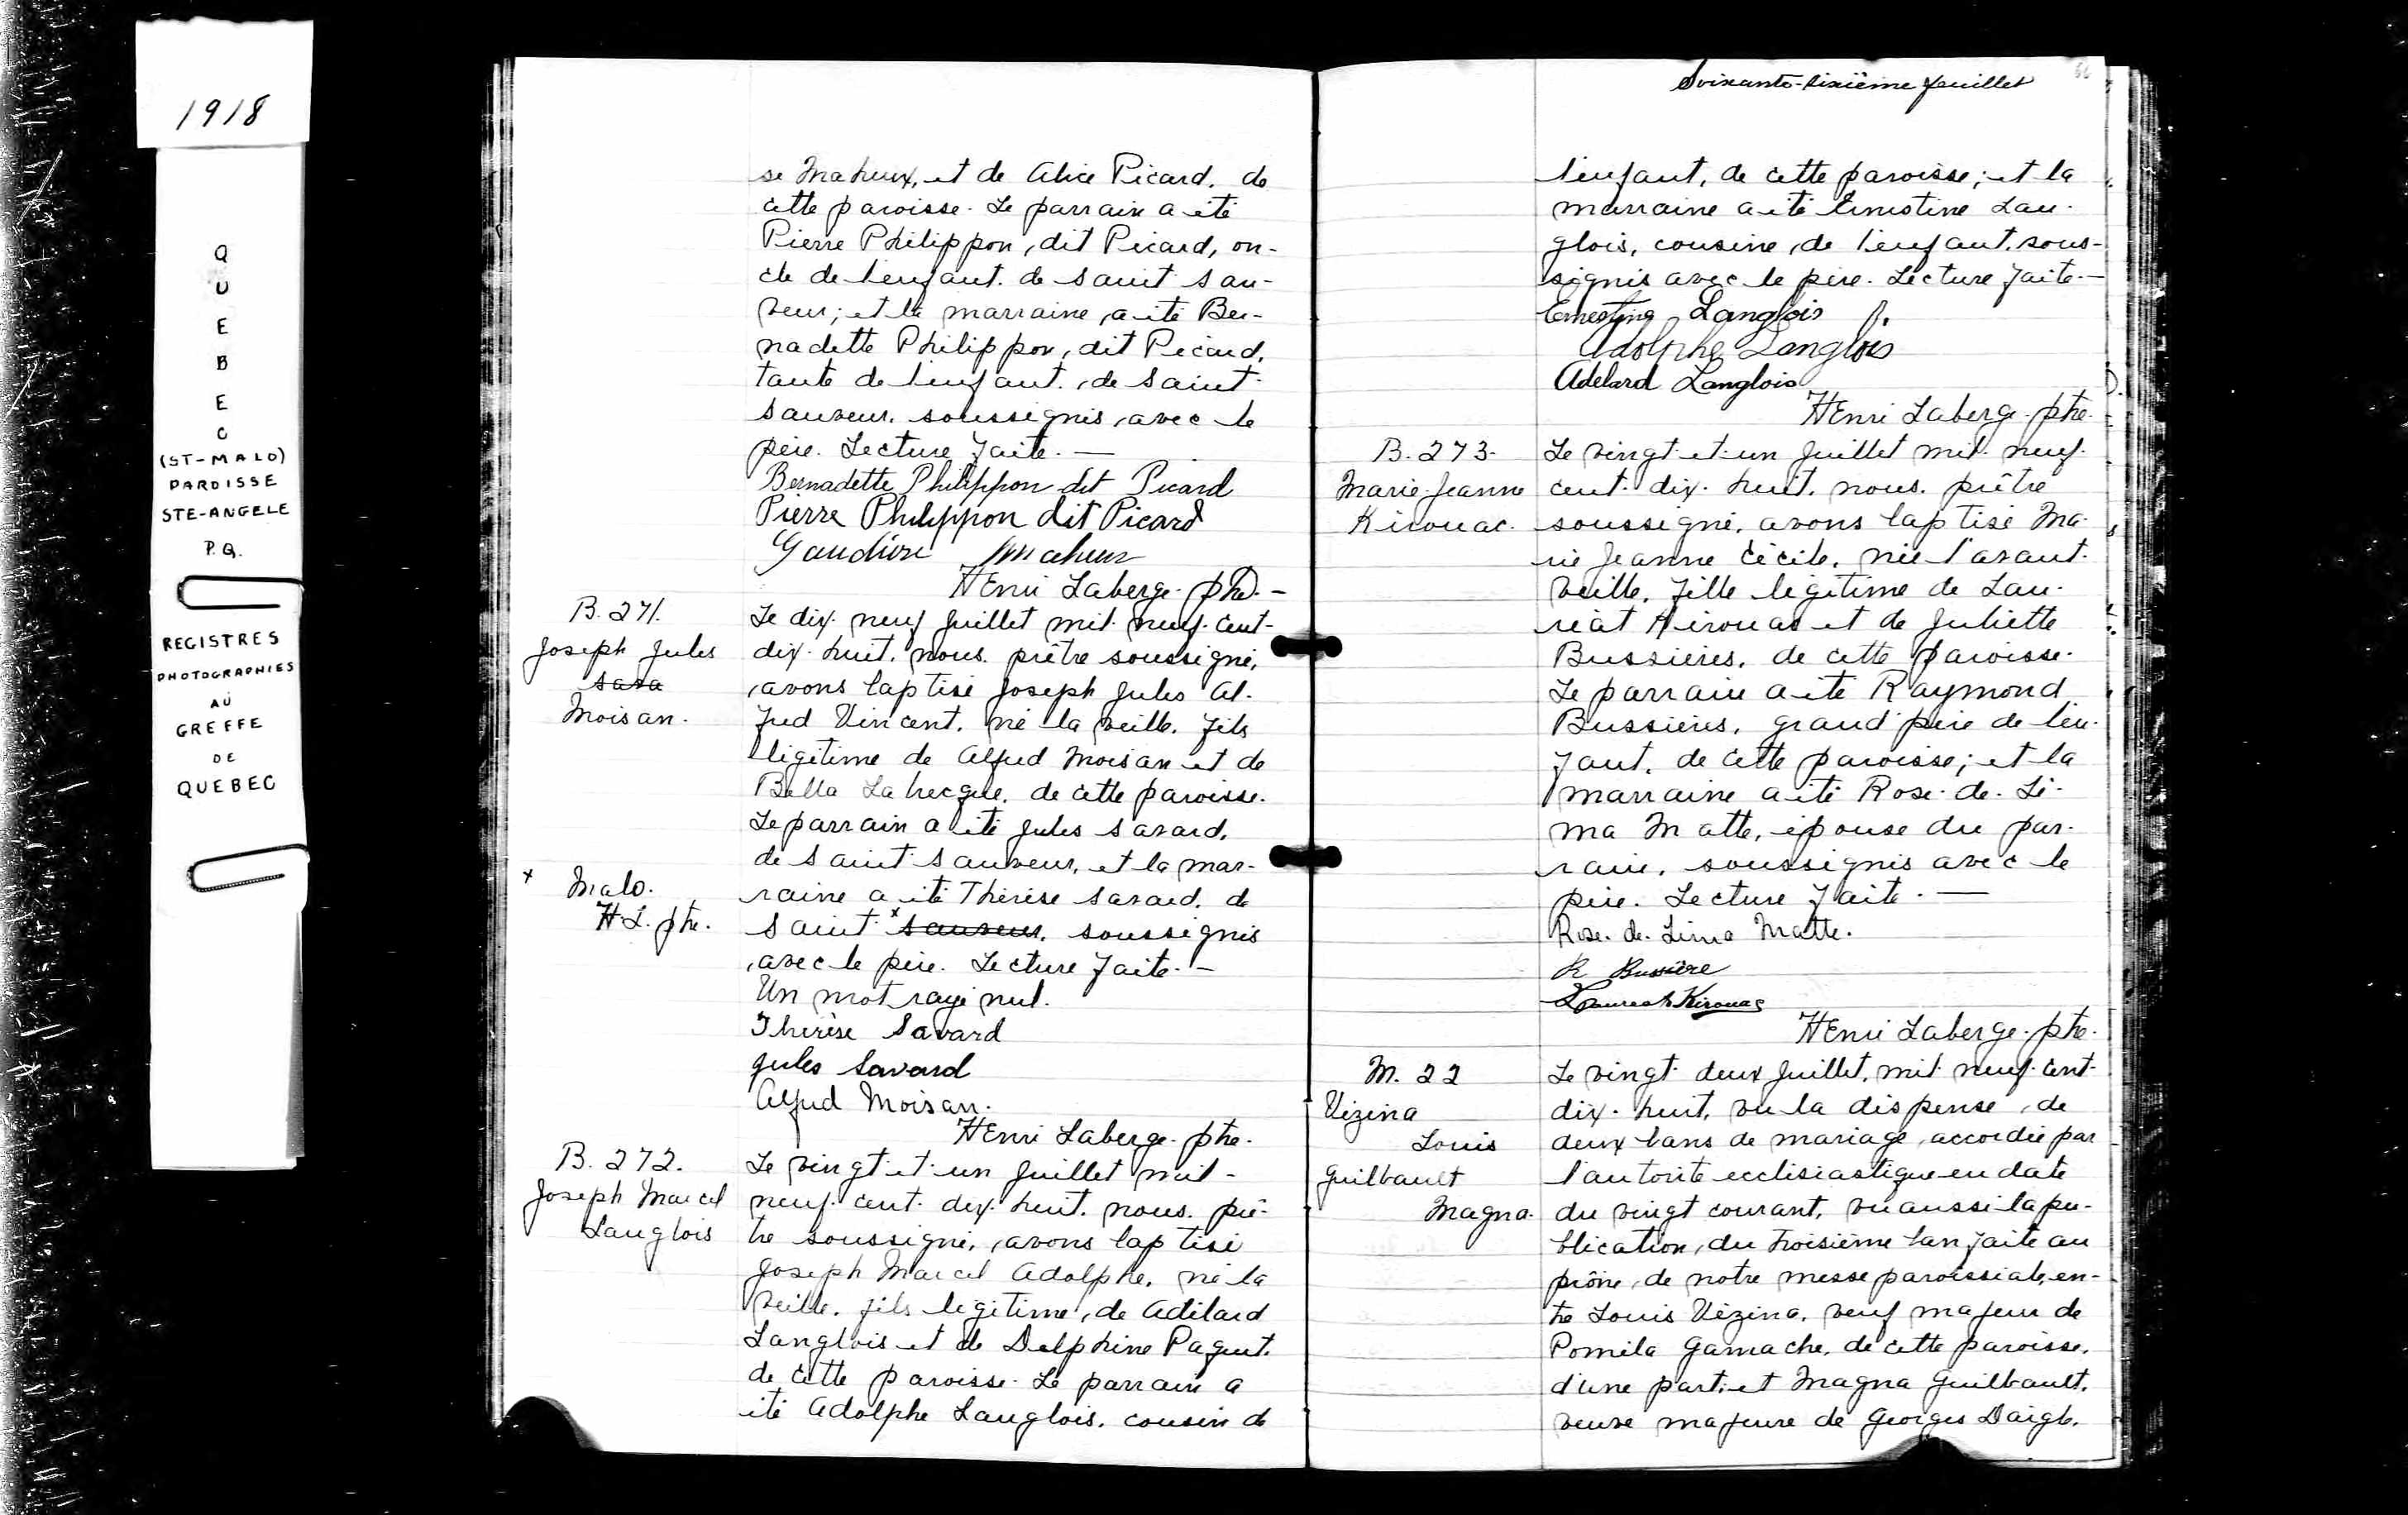 1918
QUEBEC
(ST-MALO)
PAROISSE
STE-ANGELE
P.Q.
REGISTRES
PHOTOGRAPHIES
AU
GREFFE
DE
QUEBEC
se Maheux, et de Alice Picard, de
cette paroisse. Le parrain a été
Pierre Philippon, dit Picard, on-
cle de l'enfant, de Saint Sau-
veur; et la marraine, a été Ber-
nadette Philippon, dit Picard,
tante de l'enfant, de Saint
Sauveur, soussignés, avec le
père. Lecture faite. —
Bernadette Philippon dit Picard
Pierre Philippon dit Picard
Maheux
Henri Laberge. ptre. -
B. 271.
Joseph Jules
Sava
Moisan.
Le dix-neuf Juillet mil-neuf-cent-
dix-huit, nous, prêtre soussigné,
avons baptisé Joseph Jules Al-
fred Vincent, né la veille, fils
légitime de Alfred Moisan et de
Bella Labrecque, de cette paroisse.
Le parrain a été Jules Savard,
de Saint Sauveur, et la mar-
raine a été Thérèse Savard, de
Saint x Sauveur, soussignés
avec le père. Lecture faite. -
Un mot rayé nul.
x Malo.
H.L. ptre.
Thérèse Savard
Jules Savard
Alfred Moisan.
Henri Laberge. ptre.
B. 272.
Joseph Marcel
Langlois
Le vingt-et-un Juillet mil-
neuf-cent-dix-huit, nous, prê-
tre soussigné, avons baptisé
Joseph Marcel Adolphe, né la
veille, fils légitime, de Adélard
Langlois et de Delphine Paquet,
de cette paroisse. Le parrain a
été Adolphe Langlois, cousin de
Soixante-sixième feuillet
66
l'enfant, de cette paroisse; et la
marraine a été Ernestine Lan-
glois, cousine, de l'enfant, sous-
signés avec le père. Lecture faite. —
Ernestine Langlois
Adolphe Langlois
Adelard Langlois
Henri Laberge. ptre.
B. 273.
Marie Jeanne
Kirouac.
Le vingt-et-un Juillet mil-neuf-
cent-dix-huit, nous, prêtre
soussigné, avons baptisé Ma-
rie Jeanne Cécile, née l'avant-
veille, fille légitime de Lau-
réat Kirouac et de Juliette
Bussières, de cette paroisse.
Le parrain a été Raymond
Bussières, grand'père de l'en-
fant, de cette paroisse; et la
marraine a été Rose-de-Li-
ma Matte, épouse du par-
rain, soussignés avec le
père. Lecture faite. —
Rose-de-Lima Matte.
R Bussière
Laureat Kirouac
Henri Laberge. ptre.
M. 22
Vézina
Louis
Guilbault
Magna.
Le vingt-deux Juillet, mil-neuf-cent-
dix-huit, vu la dispense, de
deux bans de mariage, accordée par
l'autorité ecclésiastique en date
du vingt courant, vu aussi la pu-
blication, du troisième ban faite au
prône, de notre messe paroissiale, en-
tre Louis Vézina, veuf majeur de
Pomela Gamache, de cette paroisse,
d'une part; et Magna Guilbault,
veuve majeure de Georges Daigle,